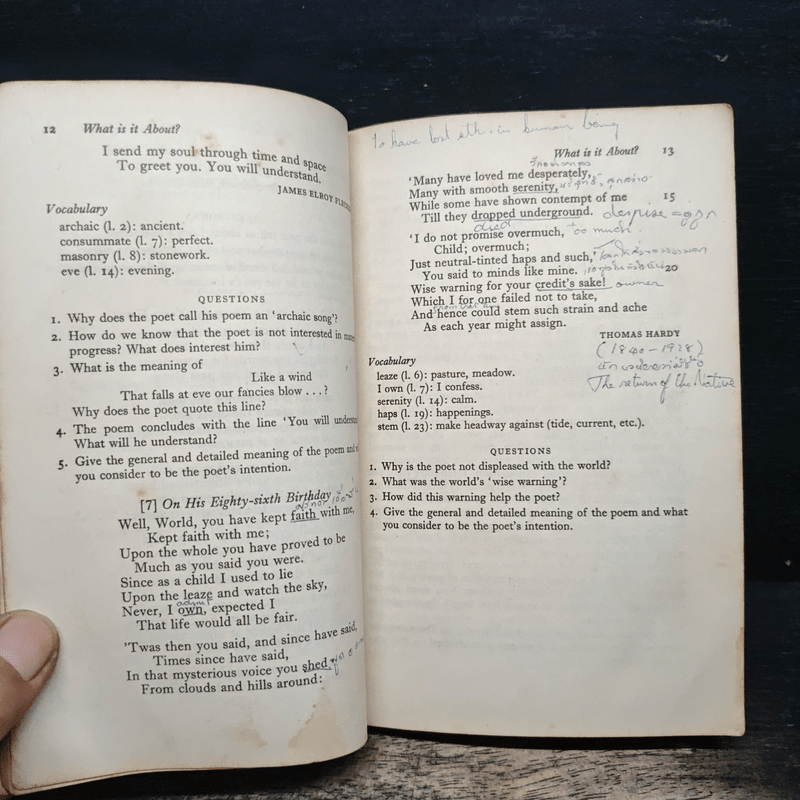 12 What is it About?
I send my soul through time and space
To greet you. You will understand.
JAMES ELROY
Vocabulary
archaic (l. 2): ancient.
consummate (l. 7): perfect.
masonry (l. 8): stonework.
eve (l. 14): evening.
QUESTIONS
1. Why does the poet call his poem an 'archaic song'?
2. How do we know that the poet is not interested in
progress? What does interest him?
3. What is the meaning of
Like a wind
That falls at eve our fancies blow . . .?
Why does the poet quote this line?
4. The poem concludes with the line 'You will
What will he understand?
5. Give the general and detailed meaning of the poem and
you consider to be the poet's intention.
[7] On His Eighty-sixth Birthday
Well, World, you have kept faith with me,
Kept faith with me;
Upon the whole you have proved to be
Much as you said you were.
Since as a child I used to lie
Upon the leaze and watch the sky,
admit
Never, I own, expected I
That life would all be fair.
'Twas then you said, and since have said,
Times since have said,
In that mysterious voice you shed
From clouds and hills around:
To have lost sth. in human being
What is it About? 13
'Many have loved me desperately,
Many with smooth serenity,
While some have shown contempt of me 15
Till they dropped underground. despise
died
'I do not promise overmuch, too much
Child; overmuch;
Just neutral-tinted haps and such,'
You said to minds like mine. 20
Wise warning for your credit's sake! owner
Which I for one failed not to take,
And hence could stem such strain and ache
As each year might assign.
THOMAS HARDY
(1840 – 1928)
The return of the Native
Vocabulary
leaze (l. 6): pasture, meadow.
I own (l. 7): I confess.
serenity (l. 14): calm.
haps (l. 19): happenings.
stem (l. 23): make headway against (tide, current, etc.).
QUESTIONS
1. Why is the poet not displeased with the world?
2. What was the world's 'wise warning'?
3. How did this warning help the poet?
4. Give the general and detailed meaning of the poem and what
you consider to be the poet's intention.